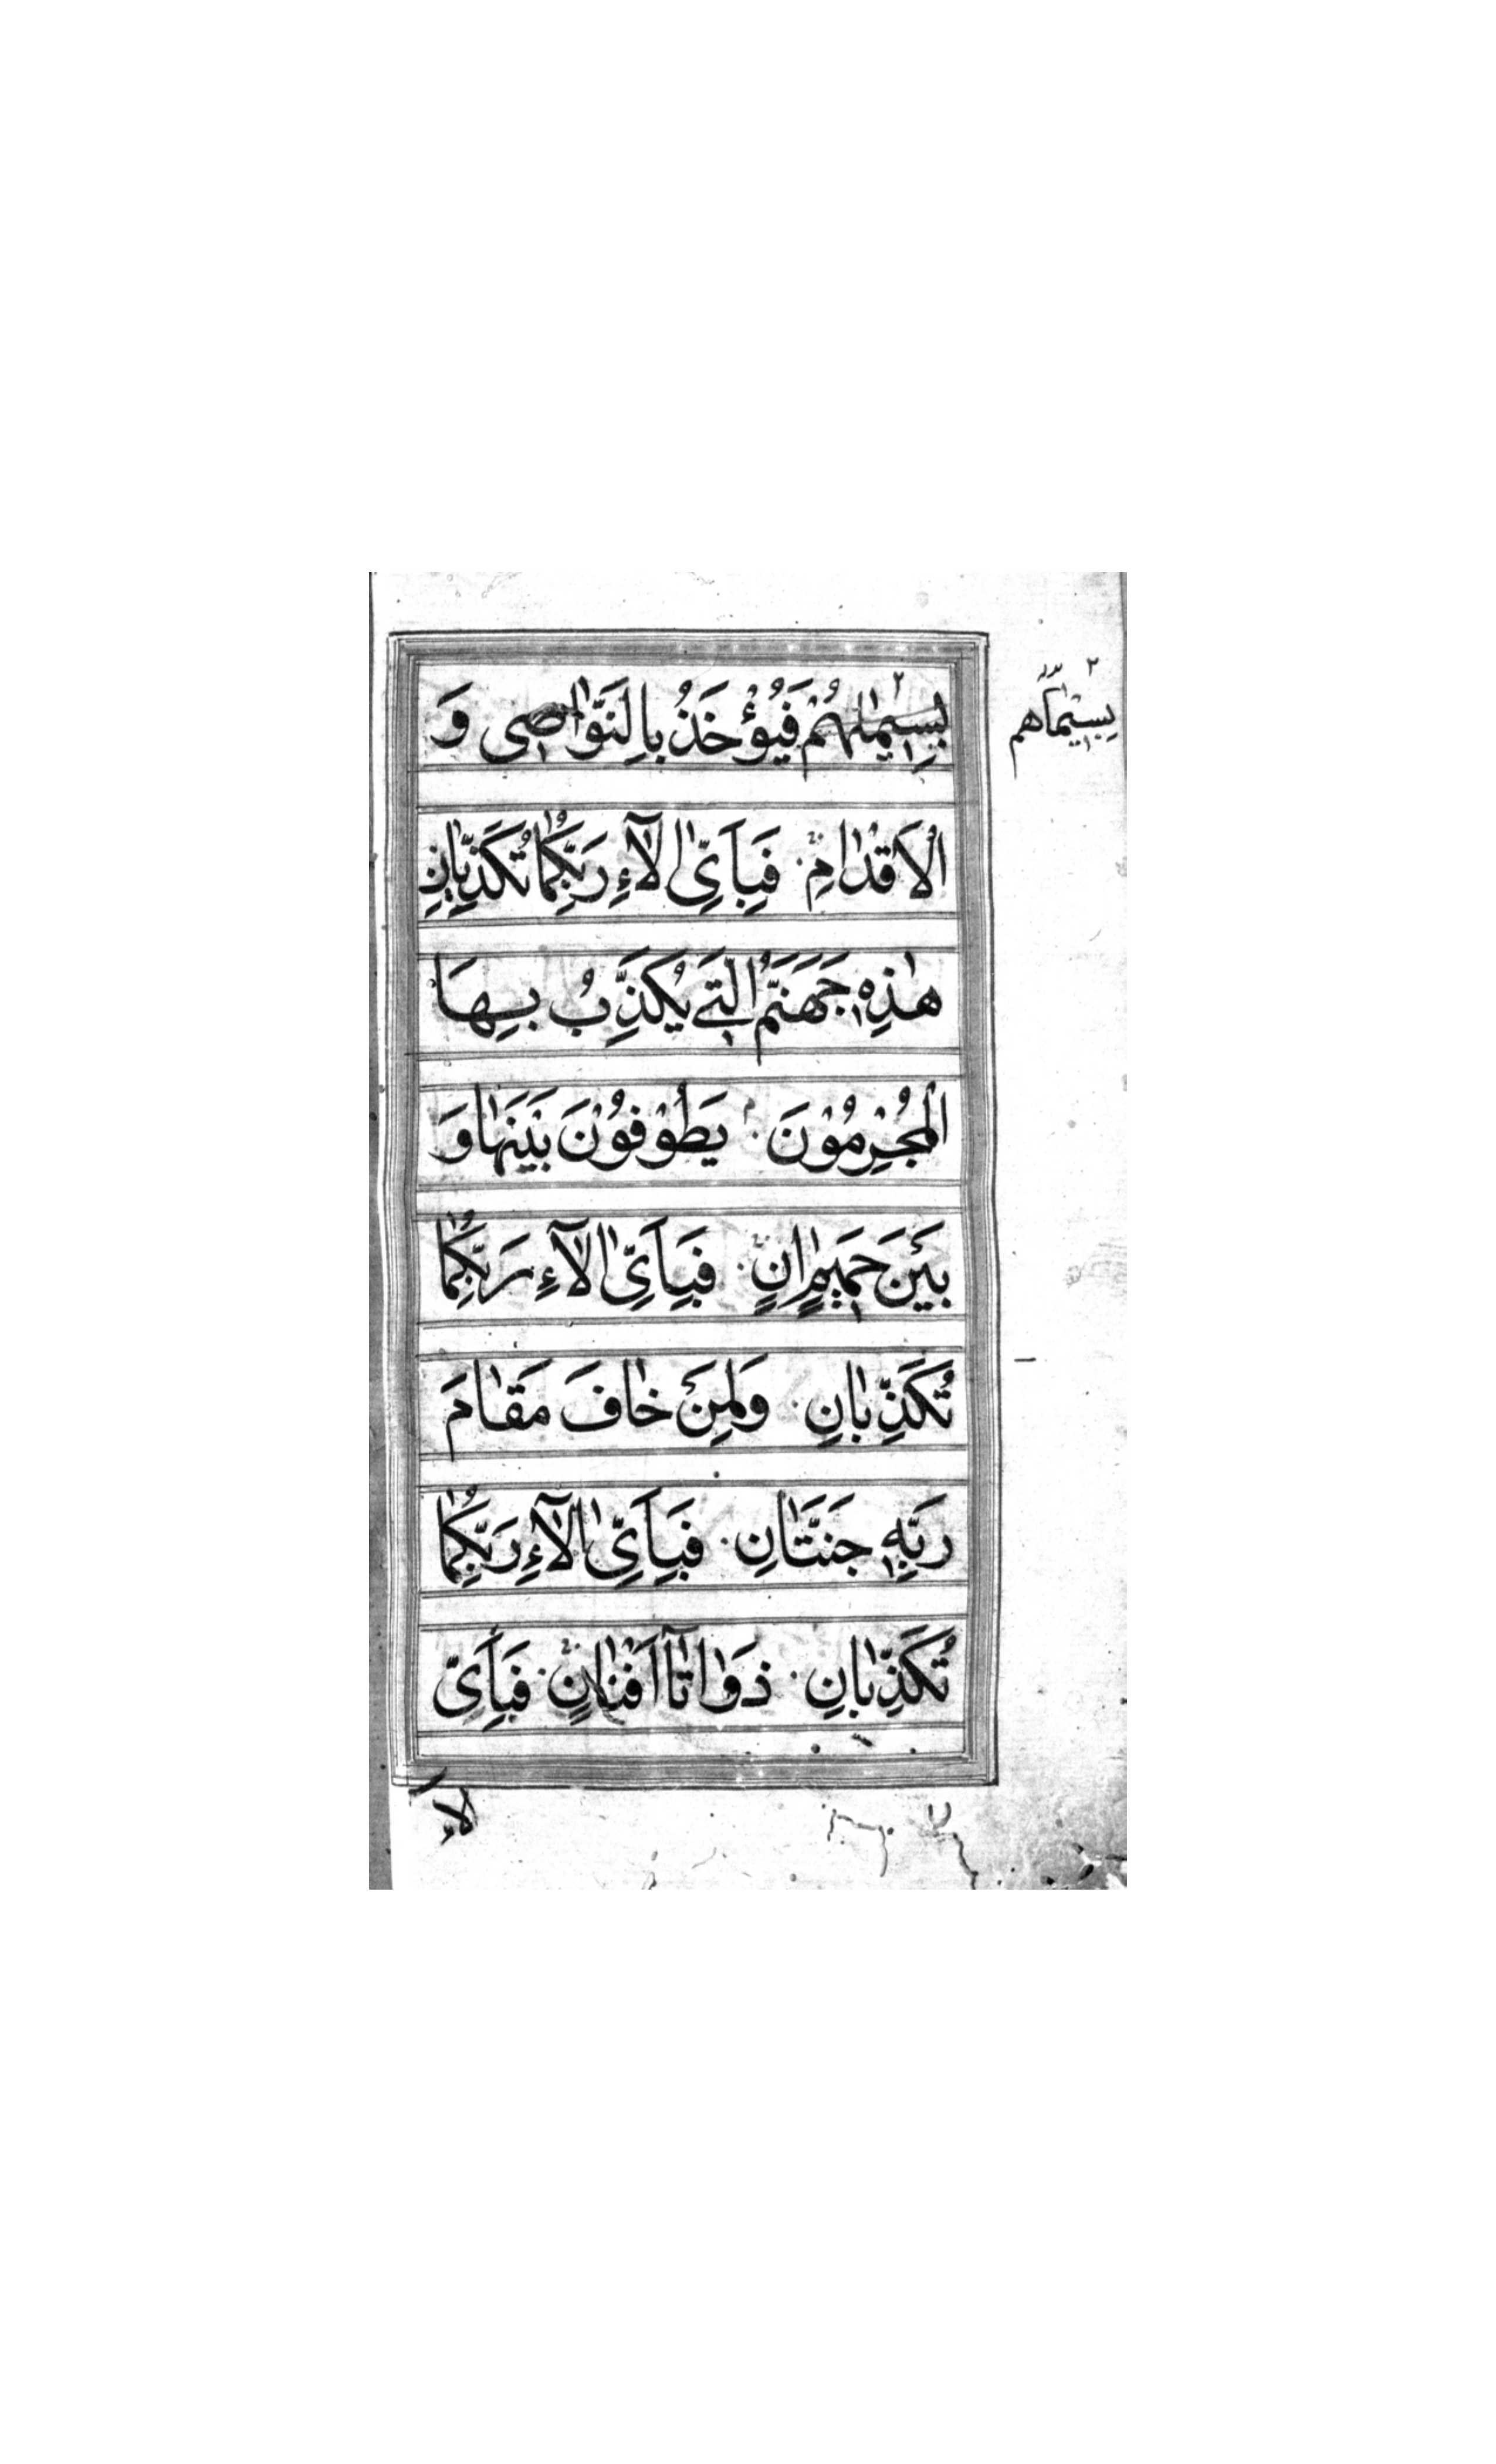 بِسِيْمٰهُمْ فَيُؤْخَذُ بِالنَّوٰاصِى وَ
بسیماهم ٢
الْاَقْدٰامِ فَبِاَىِّ اٰلآءِ رَبِّكُمٰا تُكَذِّبٰانِ
هٰذِهٖ جَهَنَّمُ الَّتٖى يُكَذِّبُ بِهَا
الْمُجْرِمُوْنَ يَطُوْفُوْنَ بَيْنَهٰا وَ
بَيْنَ حَمٖيمٍ اٰنٍ فَبِاَىِّ اٰلآءِ رَبِّكُمٰا
تُكَذِّبٰانِ وَلِمَنْ خٰافَ مَقٰامَ
رَبِّهٖ جَنَّتٰانِ فَبِاَىِّ اٰلآءِ رَبِّكُمٰا
تُكَذِّبٰانِ ذَوٰاتٰآ اَفْنٰانٍ فَبِاَىِّ
لاءِ